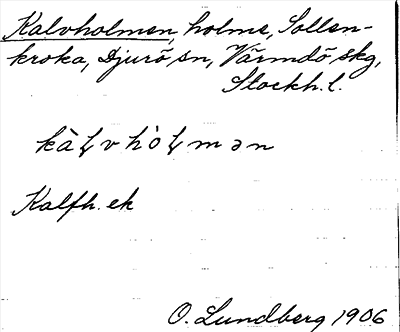 Kalvholmen, holme, Sollen-
kroka, Djurö sn, Värmdö skg,
Stockh. l.
kàɭvhòɭmən
Kalfh. ek
O. Lundberg 1906